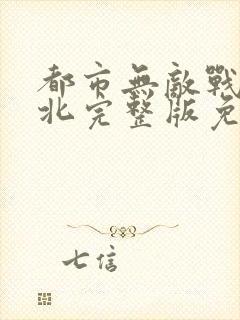 都市無敵戰
北完整版免
七信